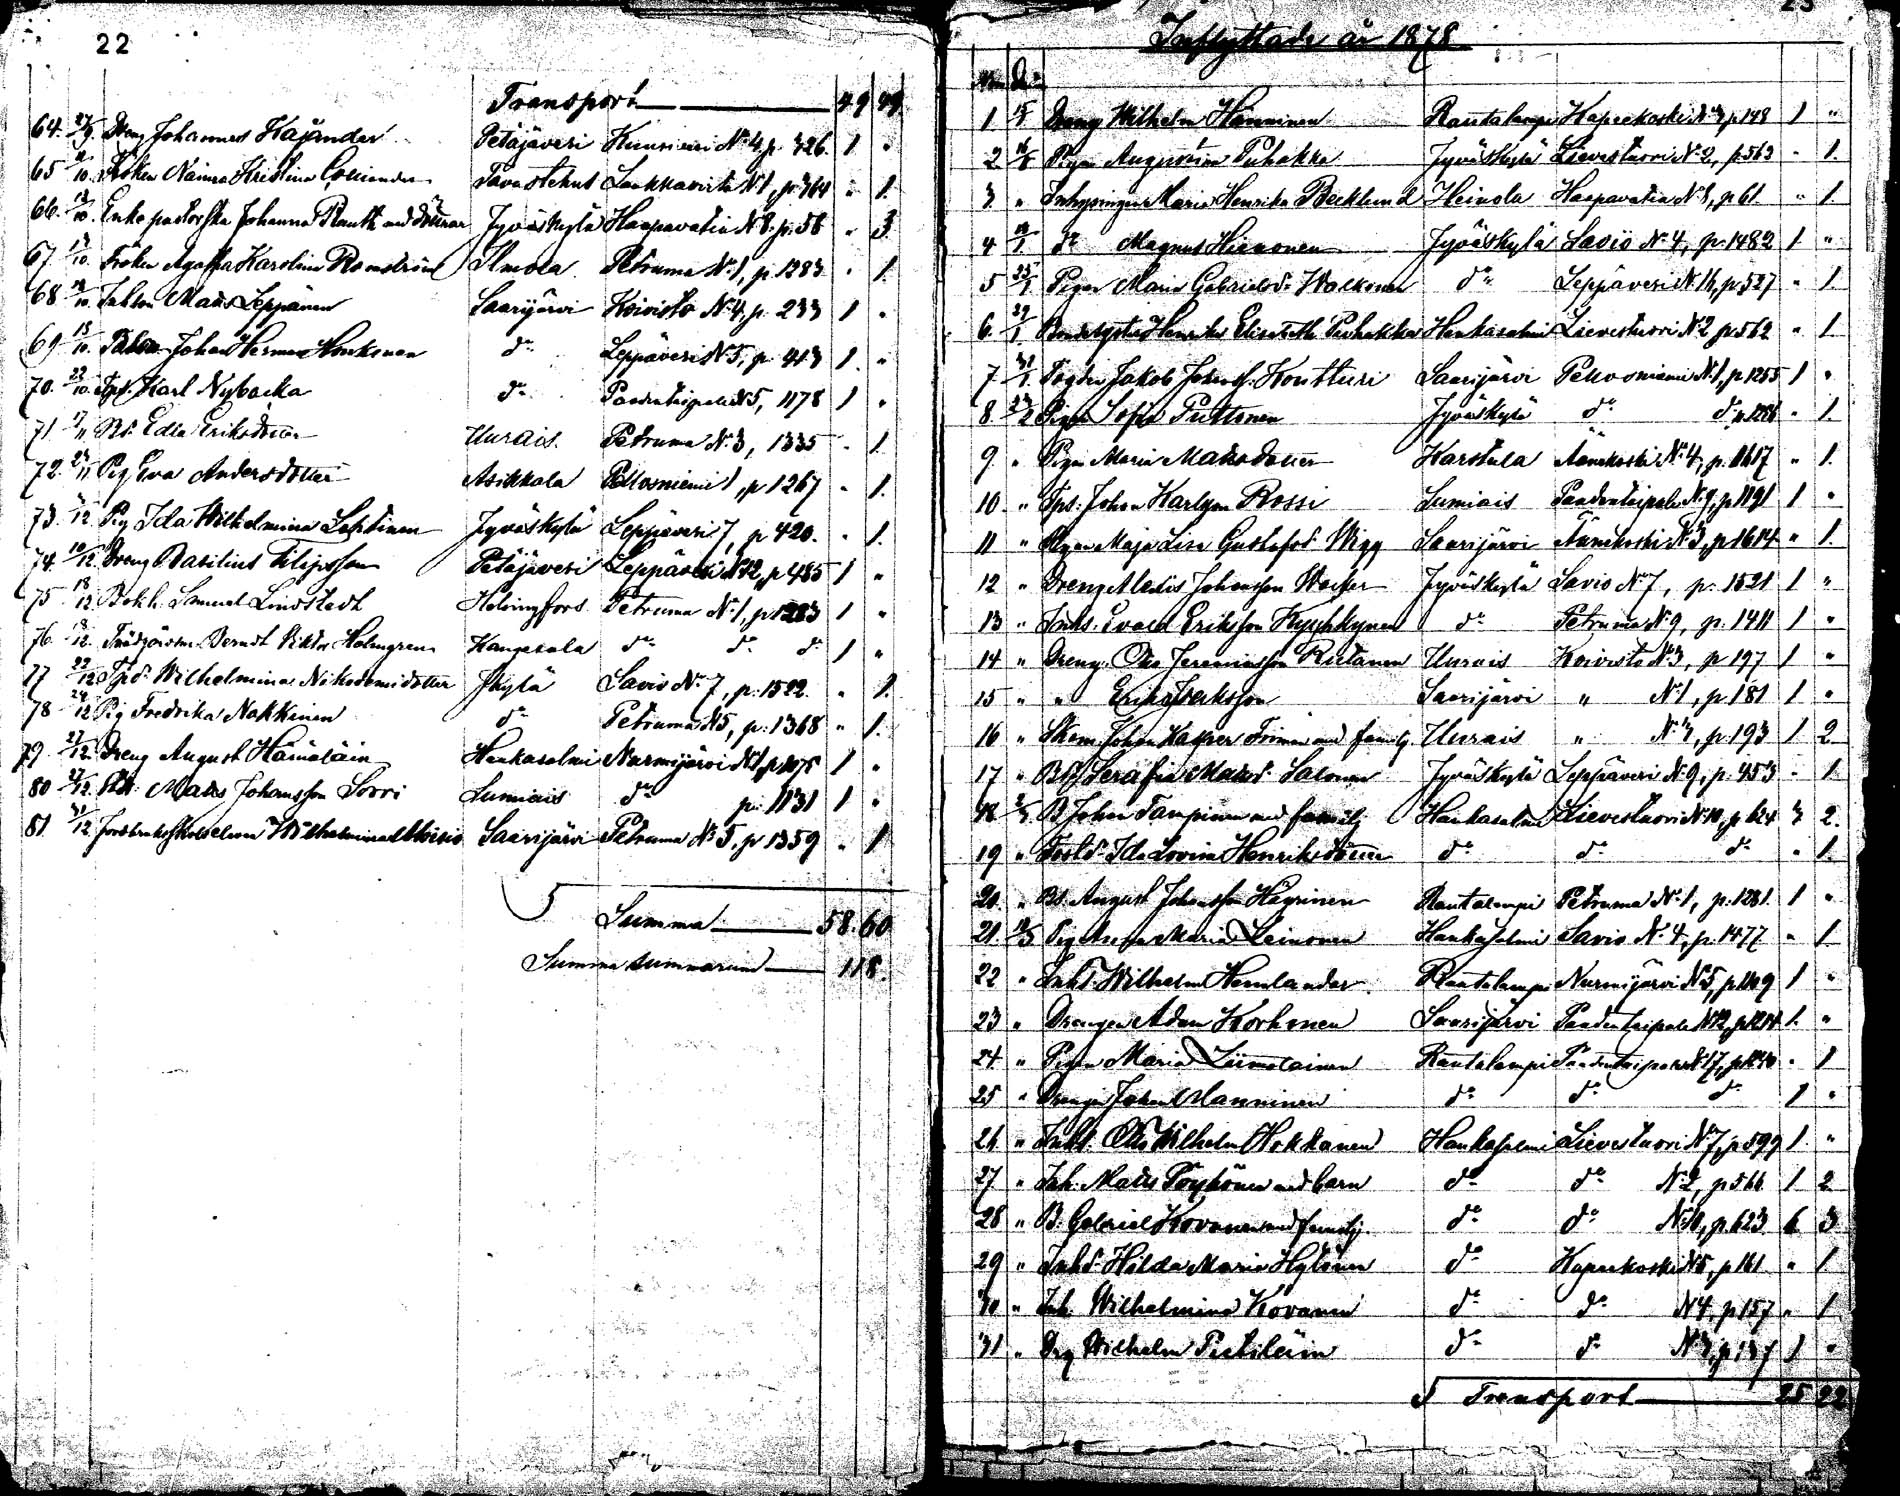 22
Transport 49 49
64. 27/9. Dreng Johannes Kajander Petäjävesi Kuusimäki N:o 4, p. 326. 1 "
65 /10. Fröken Naima Kristina Costiander Tavastehus Laukkavirta N:o 1, p. 364 " 1.
66. /10. Enkepastorska Johanna Rauth med döttrar Jyväskylä Haapavatia N:o 8. p. 58 " 3.
67. /10. Fröken Agatha Karolina Romström Ilmola Petruma N:o 1, p. 1283 " 1.
68 /10. Inhson Matts Leppänen Saarijärvi Koivisto N:o 4, p. 233 1 "
69 /10. Johan Herman Honkonen d:o Leppävesi N:o 5, p. 413 1. "
70. 22/10. Tps. Karl Nybacka d:o Paadentaipale N:o 5, 1178 1 "
71 /11 Bd. Edla Eriksdotter Uurais. Petruma N:o 3, 1335 - 1.
72. /11. Pig Eva Andersdotter Asikkala Pellosniemi 1, p 1267 - 1.
73. /12. Pig Ida Wilhelmina Lehtinen Jyväskylä Leppävesi 7, p 420. - 1.
74. 10/12 Dreng Basilius Filipsson Petäjävesi Leppävesi N:o 12, p 485 1 "
75 18/12 Bokh. Samuel Lindstedt Helsingfors Petruma N:o 1, p 1283 1 "
76. 18/12. Trädgårdsm. Berndt Viktor Holmgren Kangasala d:o d:o d:o 1 "
77 22/12 Tpd. Wilhelmina Nikodemidotter Jkylä Savio N:o 7, p. 1522. " 1.
78 24/12 Pig Fredrika Nokkinen d:o Petruma N:o 5, p. 1368 " 1.
79. 27/12. Dreng August Hämäläin Hankasalmi Nurmijärvi N:o 1, p. 1075 1 "
80 27/12. Matts Johansson Sorri Sumiais d:o p. 1131 1 "
81. 31/12. Wilhelmina Saarijärvi Petruma N:o 5, p 1359 " 1
Summa 58. 60
Summa summarum 118.
23
Inflyttade år 1878
1 15/1 Dreng Wilhelm Hänninen Rautalampi Kapeekoski N:o 3, p. 148 1 "
2 Pigan Augustina Puhakka Jyväskylä Lievestuori N:o 2, p. 563 " 1.
3 " Inhysingen Maria Henrika Becklund Heinola Haapavatia N:o 8, p 61 " 1.
4 d:o Magnus Hienonen Jyväskylä Savio N:o 4, p. 1482 1 "
5 Pigan Maria Gabrielsd:r Walkonen d:o Leppävesi N:o 16, p 527 " 1
6. 29/1 Henrika Elisabeth Puhakka Hankasalmi Lievestuori N:o 2, p 562 " 1
7 31/1. Jakob Johansson Kontturi Saarijärvi Pellosniemi N:o 1, p 1255 1 "
8. Pigan Sofia Puttonen Jyväskylä d:o d:o p. 1256 " 1.
9. " Pigan Maria Matsdotter Karstula Äänekoski N:o 4, p. 1617 " 1.
10 " Tps. Johan Karlsson Rossi Sumiais Paadentaipale N:o 9, p 1191 1 "
11 " Pigan Maja Lisa Gustafsd. Wigg Saarijärvi Äänekoski N:o 3, p 1614 " 1.
12 " Dreng Alexis Johansson Jyväskylä Savio N:o 7, p. 1521 1 "
13 " Inhs. Evard Eriksson Kyyhkynen d:o Petruma N:o 9, p. 1411 1 "
14 " Dreng. Otto Jeremiasson Rutanen Uurais Koivisto N:o 3, p 197 1 "
15 " " Erik Isaksson Saarijärvi " N:o 1, p 181 1 "
16 " Skom. Johan Kasper Friman med familj Uurais " N:o 3, p. 193 1 2
17 " Serafia Matsd. Salonen Jyväskylä Leppävesi N:o 9, p. 453 - 1
18 B. Johan Tanpinen med familj Hankasalmi Lievestuori N:o 10, p. 624 3 2.
19 " Ida Lovisa Henriksdotter d:o d:o d:o " 1.
20. " Bs. August Johansson Häyrinen Rautalampi Petruma N:o 1, p. 1281. 1 "
21. Pig Anna Maria Leinonen Hankasalmi Savio N:o 4, p. 1477 " 1
22 " Inhs. Wilhelm Hemlander Rautalampi Nurmijärvi N:o 5, p 1109 1 "
23 " Drengen Adam Korhonen Saarijärvi Paadentaipale N:o 12, p 1214 1. "
24 " Pigan Maria Liimatainen Rautalampi Paadentaipale N:o 17, p 1240 " 1
25 " Drengen Johan Manninen d:o d:o d:o 1 "
26 " Inhs. Otto Wilhelm Hokkanen Hankasalmi Lievestuori N:o 7, p 599 1 "
27 " Inh. Matts Pöyhönen med barn d:o d:o N:o 2, p 566 1 2
28 " B. Gabriel Kovanen med familj. d:o d:o N:o 10, p. 623 6 3
29 " Inhd. Hilda Maria Hytönen d:o Kapeekoski N:o 5, p 161 " 1
30 " Inh. Wilhelmina Kovanen d:o d:o N:o 4, p. 157 " 1
31 " Drg Wilhelm Pietiläin d:o d:o N:o 3, p 137 1 "
Transport 25 22